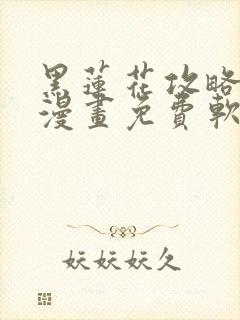 黑蓮花攻略
漫畫免費軟
妖妖妖久